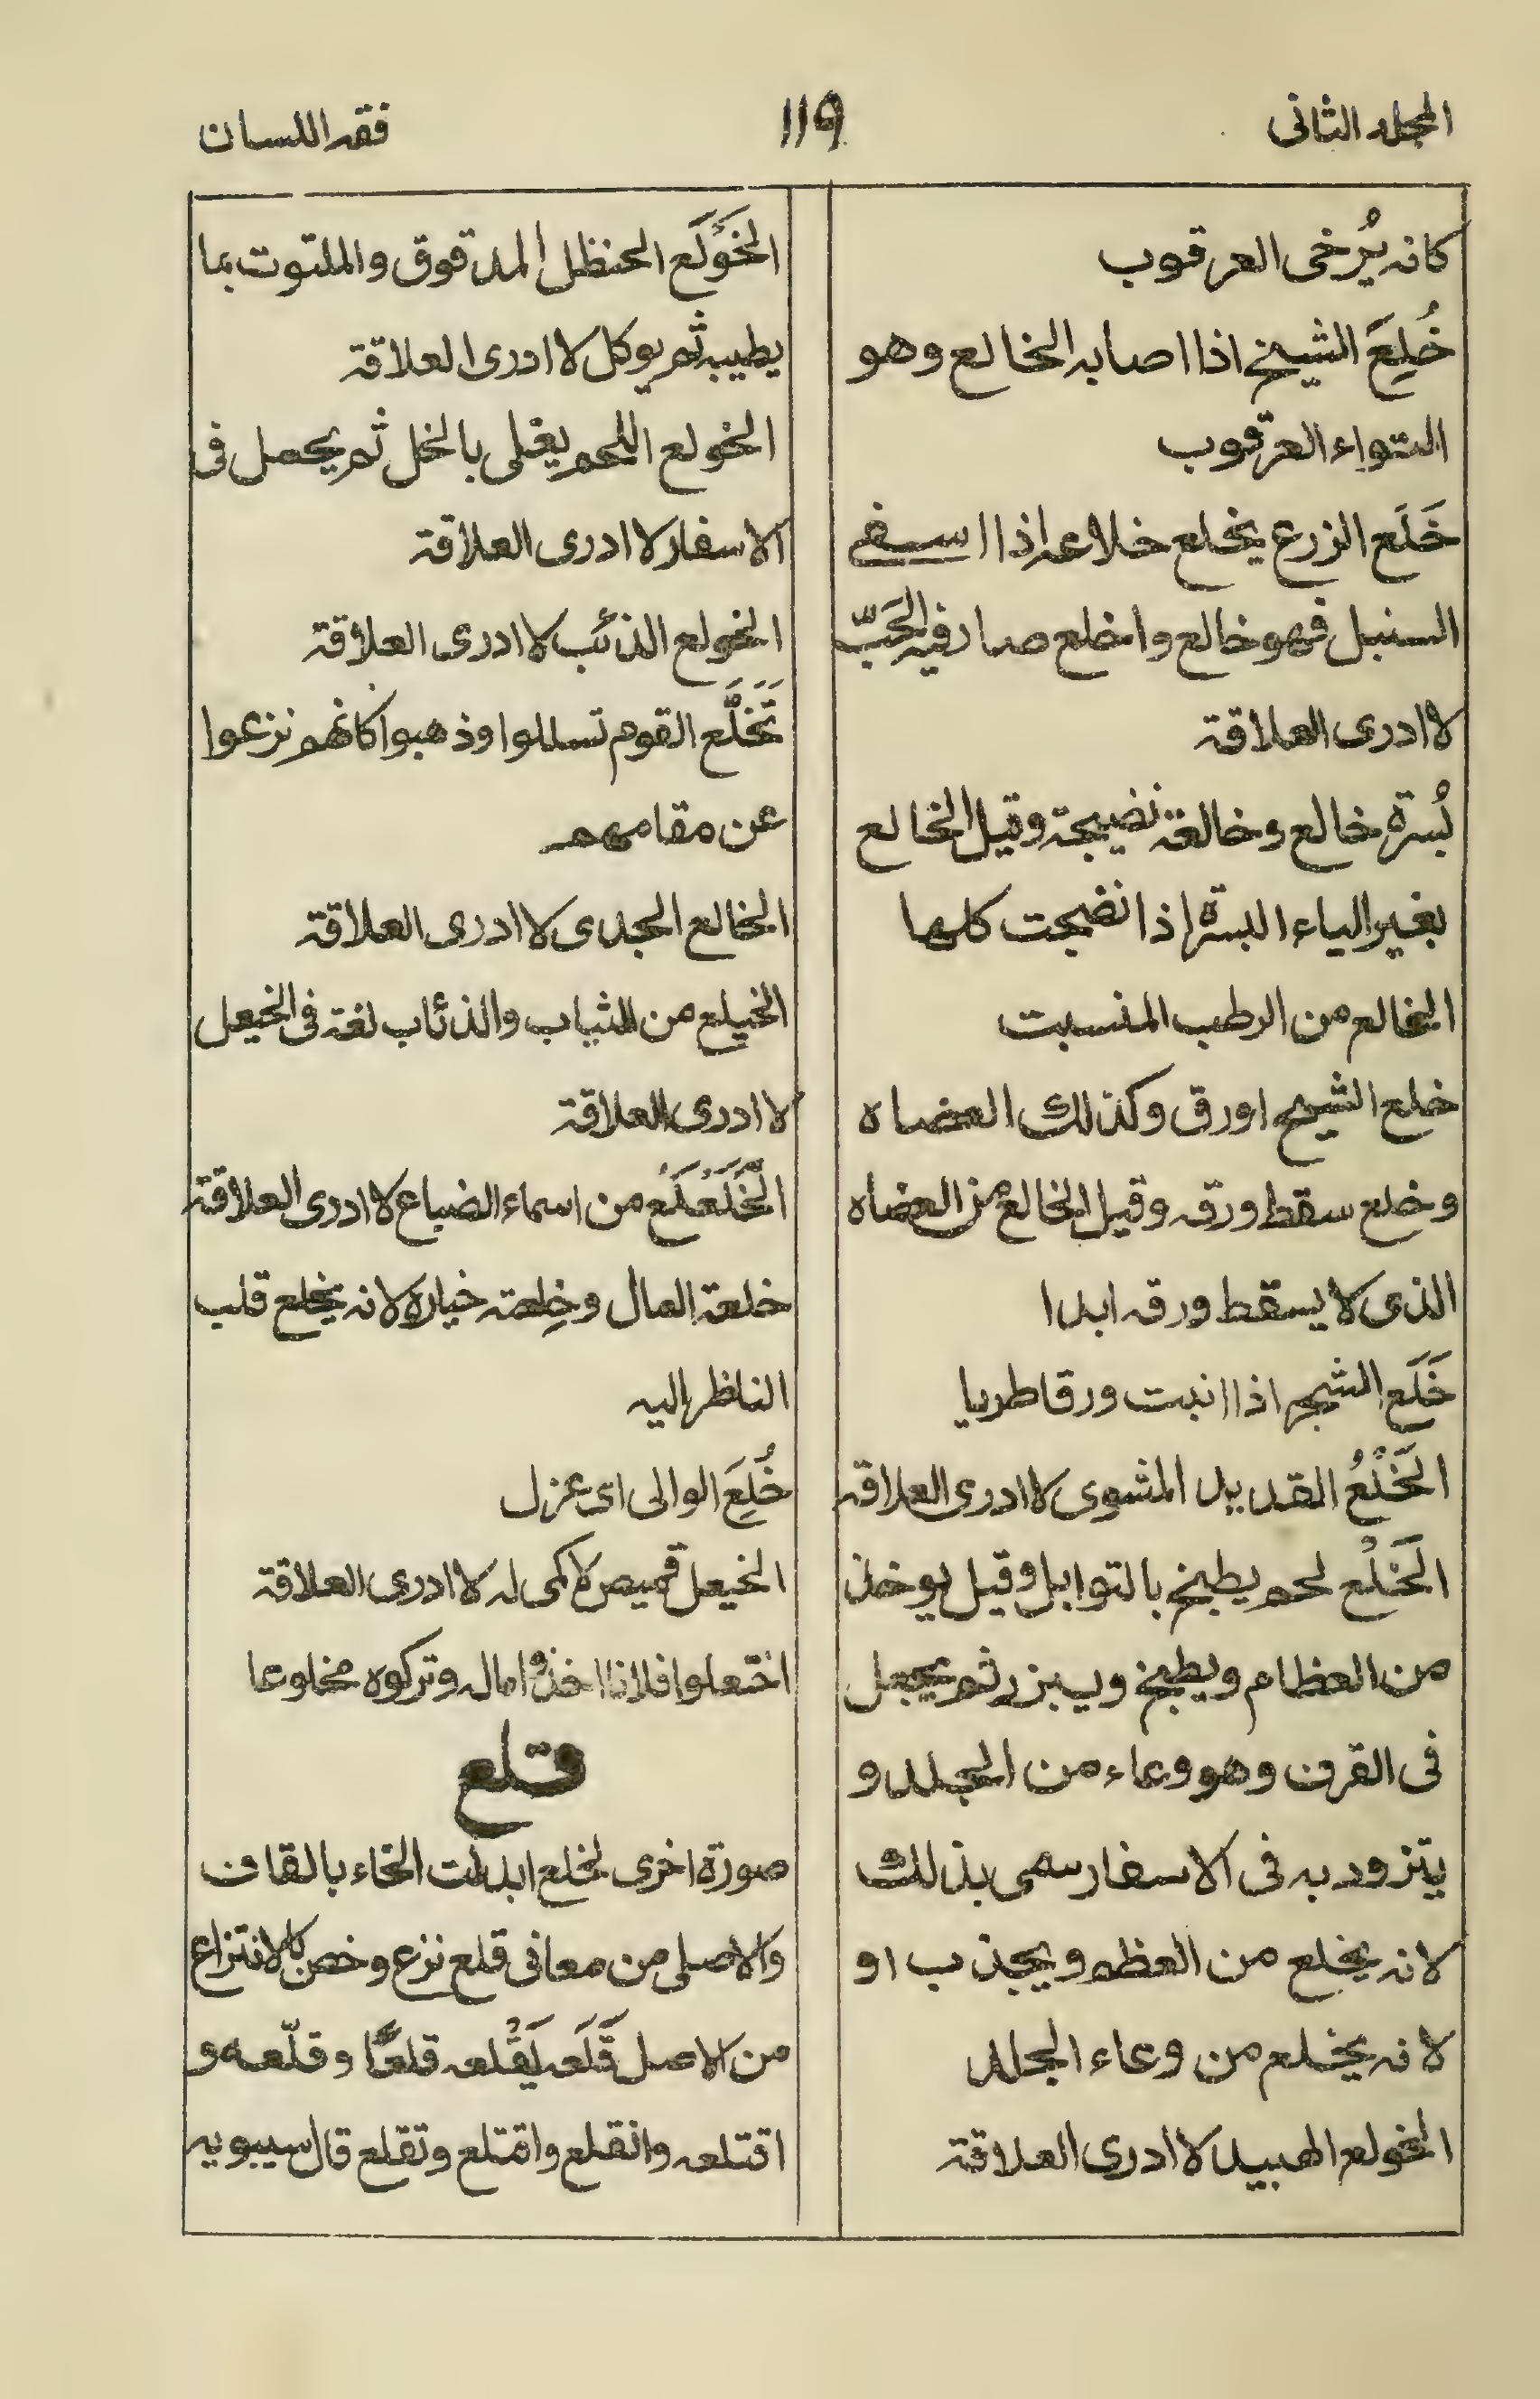 المجلد الثانى
119
فقه اللسان
كانه يُرخى العرقوب
خُلِعَ الشيخ اذا اصابه الخالع وهو
التواء العرقوب
خَلَع الزرع يخلع خلاعه اذا اسفى
السنبل فهو خالع واخلع صار فيه الحَبّ
لا ادرى العلاقة
بُسرة خالع وخالعة نضيجة وقيل الخالع
بغير الياء البسرة اذا نضجت كلها
الخالع من الرطب المنسبت
خلع الشيح اورق وكذلك العضاه
وخلع سقط ورقه وقيل الخالع من العضاه
الذى لا يسقط ورقه ابدا
خَلَع الشجر اذا انبت ورقا طريا
الخَلْعُ القديد المشوى لا ادرى العلاقة
الخَلْع لحم يطبخ بالتوابل وقيل يوخذ
من العظام ويطبخ ويبزر ثم يجعل
فى القرن وهو وعاء من الجلد و
يتزود به فى الاسفار سمى بذلك
لانه يخلع من العظم ويجذب او
لانه يخلع من وعاء الجلد
الخولع الهبيد لا ادرى العلاقة
الخَوْلَع الحنظل المدقوق والملتوت بما
يطيبه ثم يوكل لا ادرى العلاقة
الخولع اللحم يغلى بالخل ثم يحمل فى
الاسفار لا ادرى العلاقة
الخولع الذئب لا ادرى العلاقة
تَخَلَّع القوم تسللوا وذهبوا كانهم نزعوا
عن مقامهم
الخالع الجدى لا ادرى العلاقة
الخيلع من الثياب والذئاب لغة فى الخيعل
لا ادرى العلاقة
الخَلَعْلَع من اسماء الضباع لا ادرى العلاقة
خلعة المال وخِلعته خياره لانه يخلع قلب
الناظر اليه
خُلِعَ الوالى اى عزل
الخيعل قميص لا كمى له لا ادرى العلاقة
اختعلوا فلانا اخذوا ماله وتركوه مخلوعا
قلع
صورة اخرى لخلع ابدلت الخاء بالقاف
والاصلى من معانى قلع نزع وخص بالانتزاع
من الاصل قَلَعه يَقْلعه قلعًا وقلّعه و
اقتلعه وانقلع واقتلع وتقلع قال سيبويه